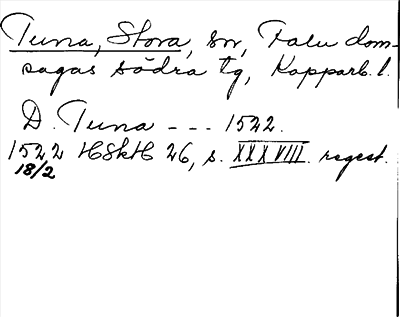 Tuna, Stora, sn, Falu dom-
sagas södra tg, Kopparb. l.
D. Tuna --- 1522.
1522 HSkH 26, s. XXXVIII. regest.
18/2